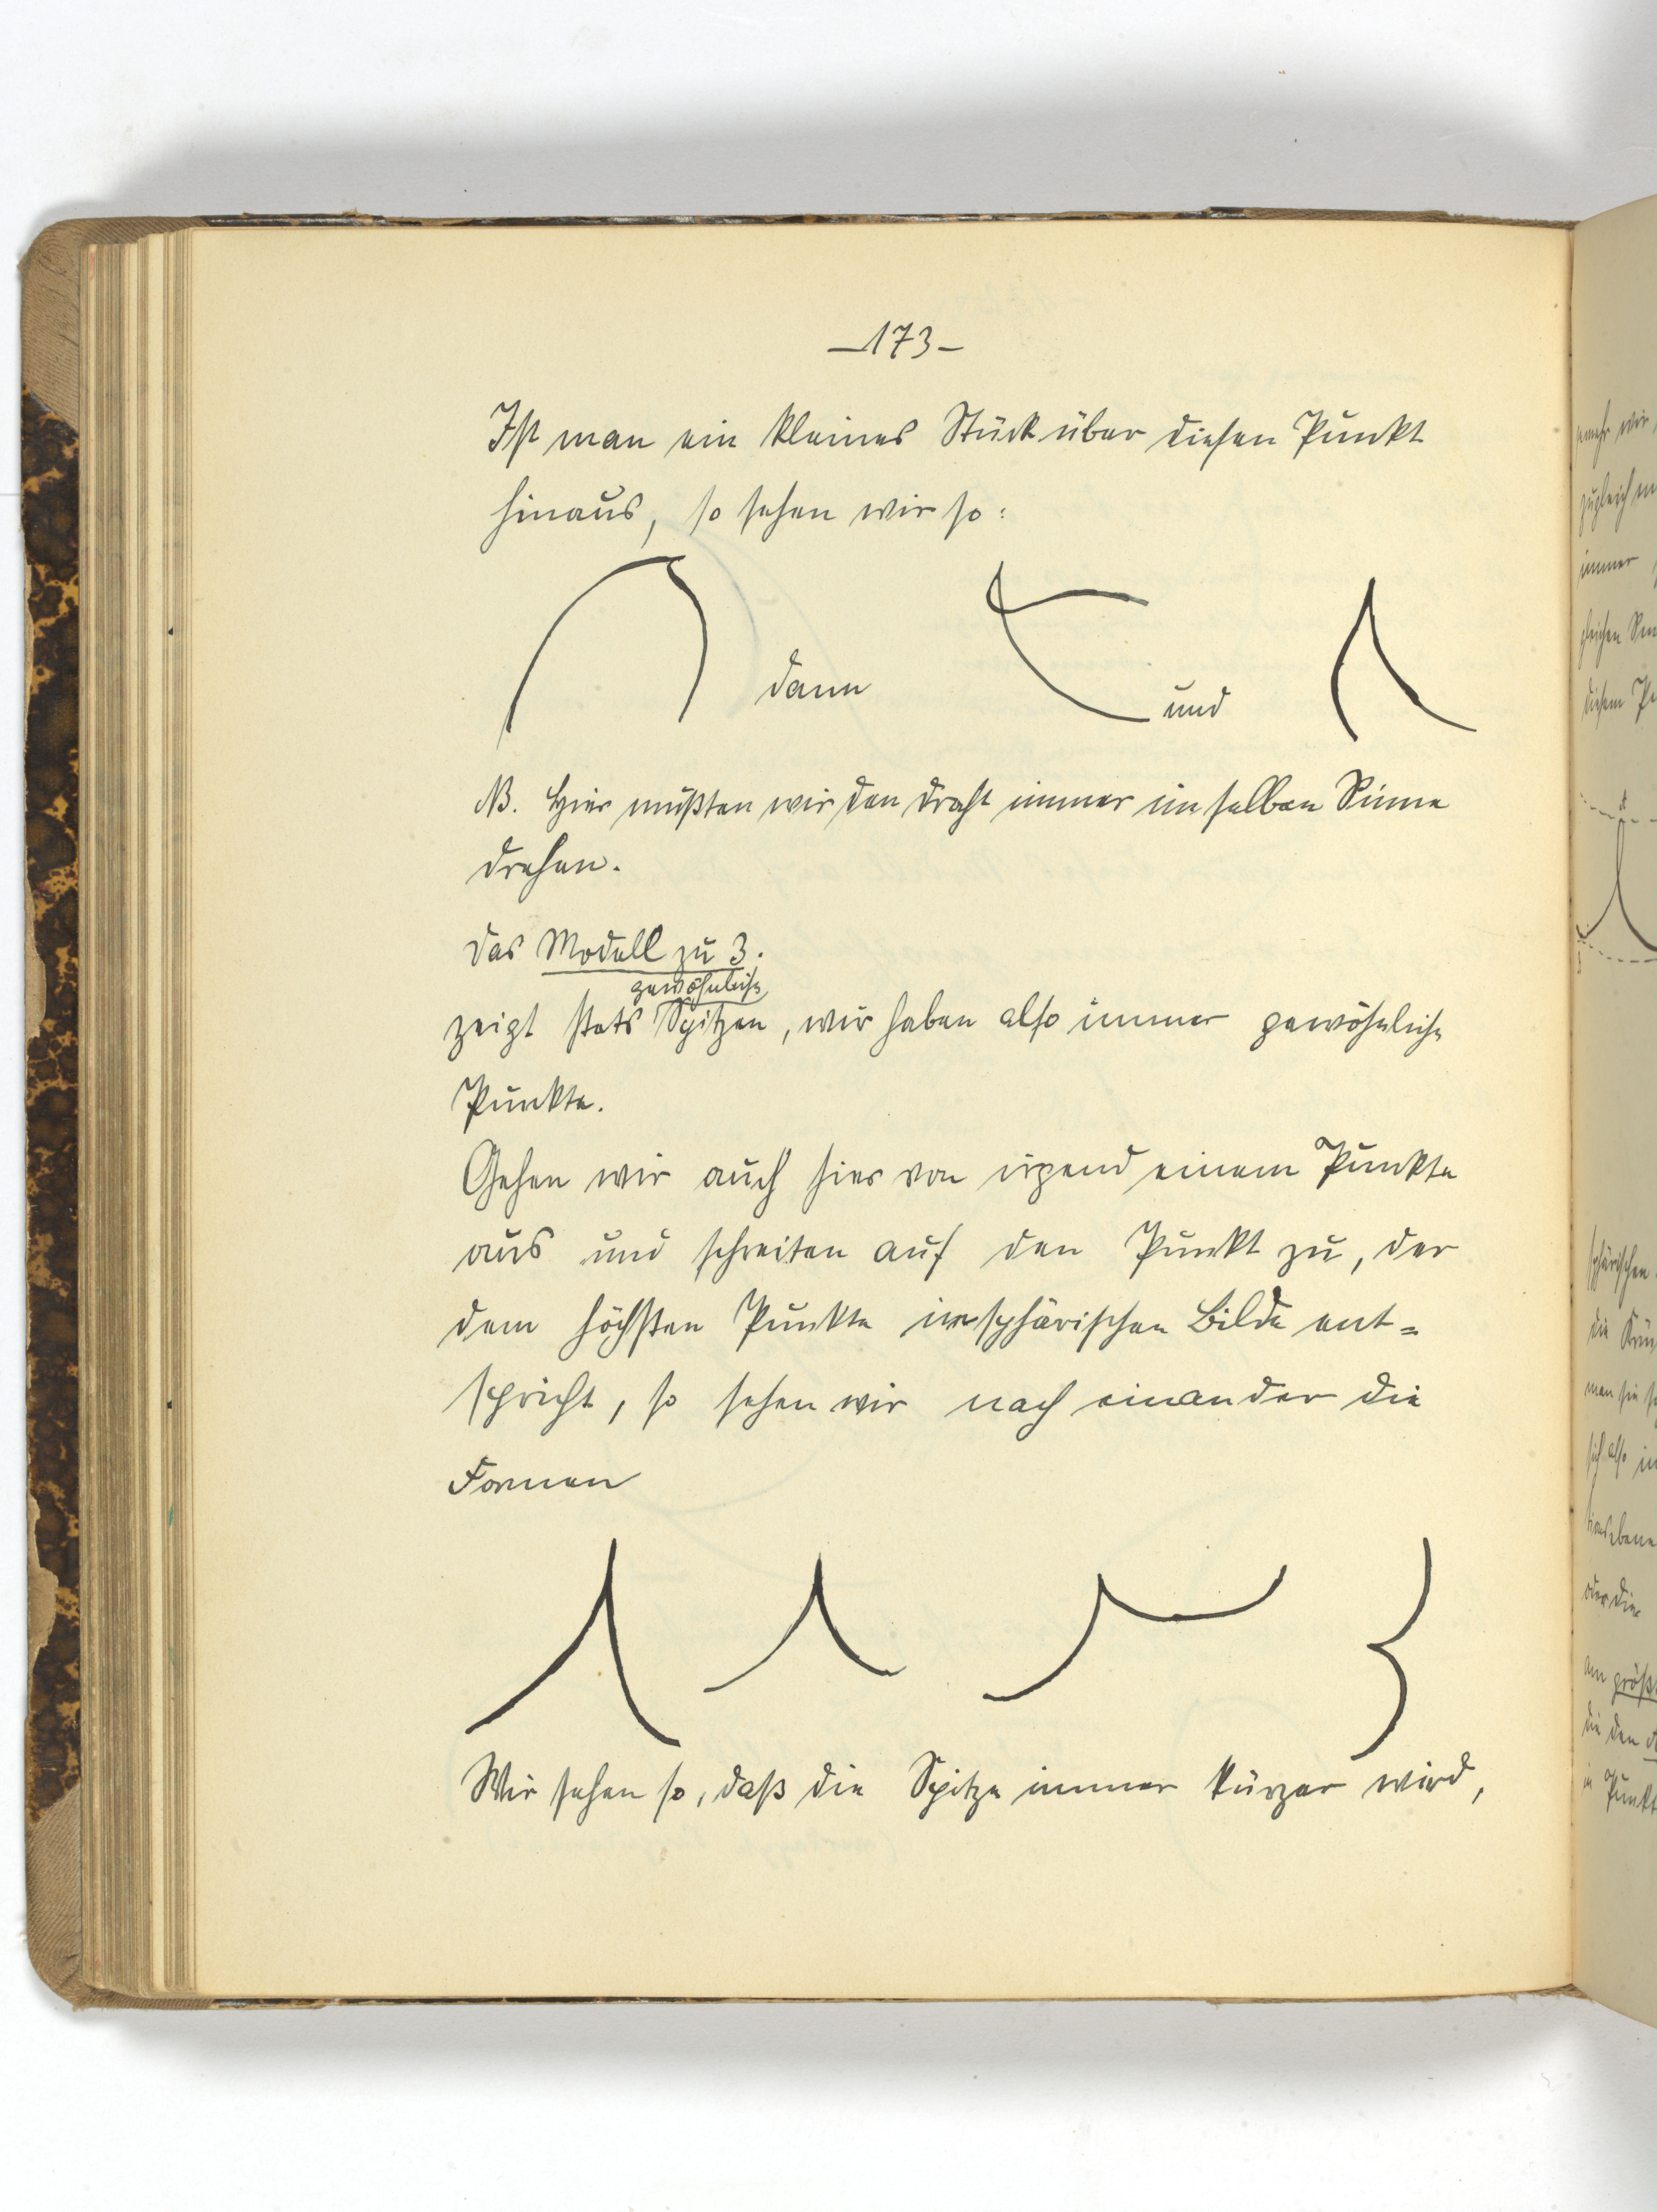 – 173 –
Ist man ein kleines Stück über diesen Punkt
hinaus, so sehen wir so:
dann
und
NB. Hier mußten wir den Draht immer im selben Sinne
drehen.
Das Modell zu 3.
gewöhnliche
zeigt stets Spitzen, wir haben also immer gewöhnliche
Punkte.
Gehen wir auch hier von irgend einem Punkte
aus und schreiten auf den Punkt zu, der
dem höchsten Punkte im sphärischen Bilde ent=
spricht, so sehen wir nach einander die
Formen
Wir sehen so, daß die Spitze immer kürzer wird,
wir
zugleich
immer
gleichen
diesem
A
sphärischen
die
man sie
sich also
oder die
am
die den
in Punkt